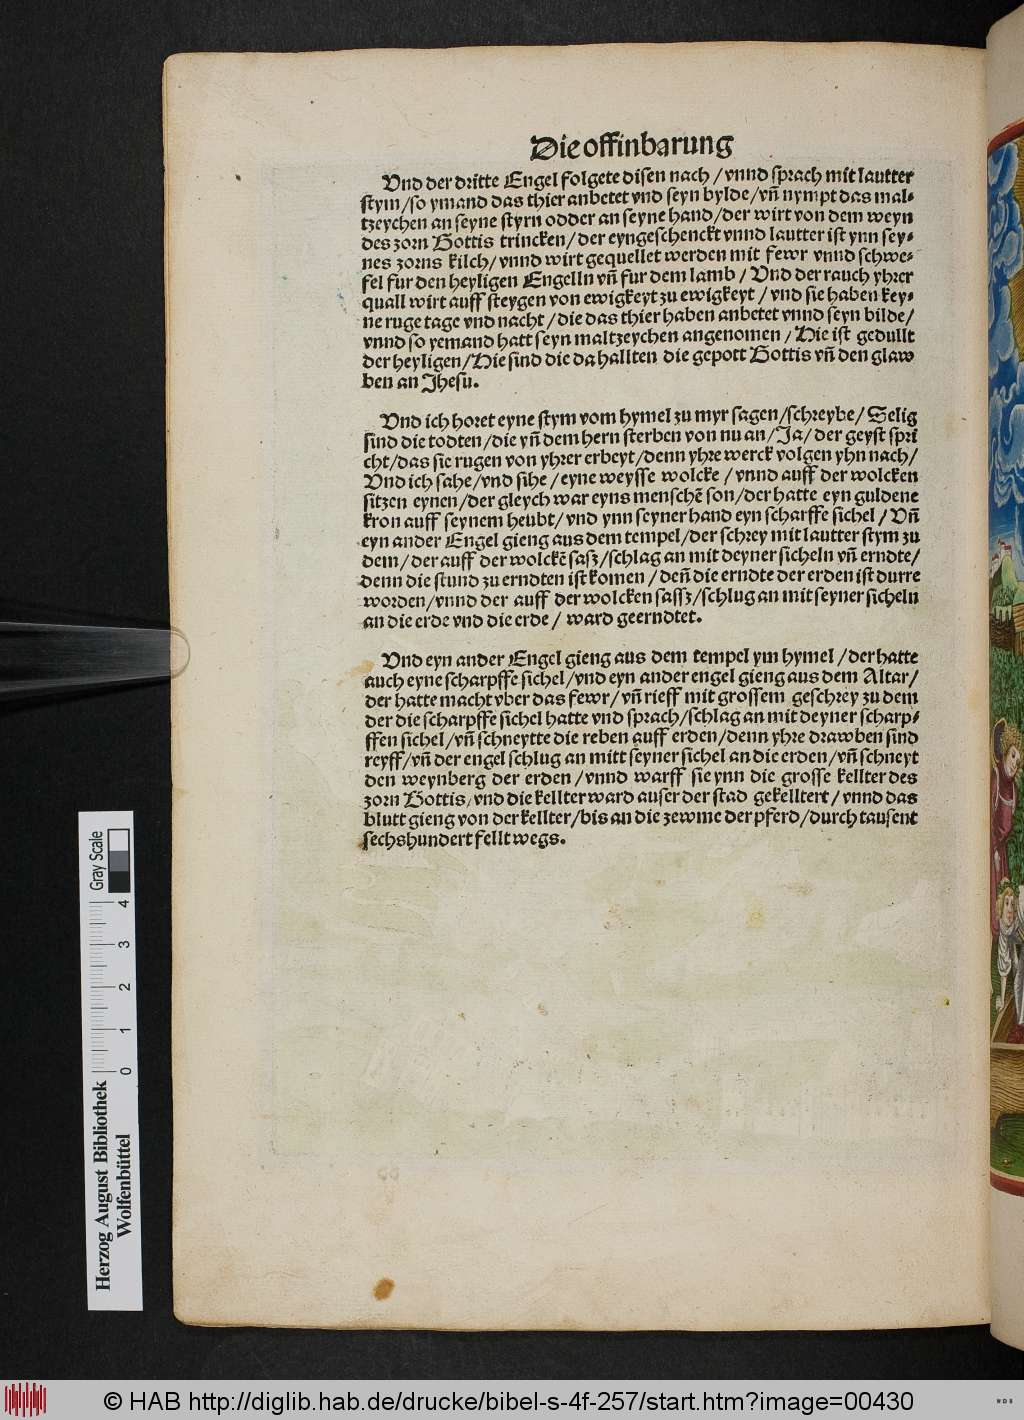 Die offinbarung
Vnd der dritte Engel folgete disen nach / vnnd sprach mit lautter
stym / so ymand das thier anbetet vnd seyn bylde / vñ nympt das mal-
tzeychen an seyne styrn odder an seyne hand / der wirt von dem weyn
des zorn Gottis trincken / der eyngeschenckt vnnd lautter ist ynn sey-
nes zorns kilch / vnnd wirt gequellet werden mit fewr vnnd schwe-
fel fur den heyligen Engelln vñ fur dem lamb / Vnd der rauch yhrer
quall wirt auff steygen von ewigkeyt zu ewigkeyt / vnd sie haben key-
ne ruge tage vnd nacht / die das thier haben anbetet vnnd seyn bilde /
vnnd so yemand hatt seyn maltzeychen angenomen / Hie ist gedullt
der heyligen / Hie sind die da hallten die gepott Gottis vñ den glaw
ben an Jhesu.
Vnd ich horet eyne stym vom hymel zu myr sagen / schreybe / Selig
sind die todten / die yñ dem hern sterben von nu an / Ja / der geyst spri
cht / das sie rugen von yhrer erbeyt / denn yhre werck volgen yhn nach /
Vnd ich sahe / vnd sihe / eyne weysse wolcke / vnnd auff der wolcken
sitzen eynen / der gleych war eyns menschē son / der hatte eyn guldene
kron auff seynem heubt / vnd ynn seyner hand eyn scharffe sichel / Vñ
eyn ander Engel gieng aus dem tempel / der schrey mit lautter stym zu
dem / der auff der wolckē sasz / schlag an mit deyner sicheln vñ erndte /
denn die stund zu erndten ist komen / deñ die erndte der erden ist durre
worden / vnnd der auff der wolcken sassz / schlug an mit seyner sicheln
an die erde vnd die erde / ward geerndtet.
Vnd eyn ander Engel gieng aus dem tempel ym hymel / der hatte
auch eyne scharpffe sichel / vnd eyn ander engel gieng aus dem Altar /
der hatte macht vber das fewr / vñ rieff mit grossem geschrey zu dem
der die scharpffe sichel hatte vnd sprach / schlag an mit deyner scharp-
ffen sichel / vñ schneytte die reben auff erden / denn yhre drawben sind
reyff / vñ der engel schlug an mitt seyner sichel an die erden / vñ schneyt
den weynberg der erden / vnnd warff sie ynn die grosse kellter des
zorn Gottis / vnd die kellter ward auser der stad gekelltert / vnnd das
blutt gieng von der kellter / bis an die zewme der pferd / durch tausent
sechshundert fellt wegs.
Herzog August Bibliothek
Wolfenbüttel
0 1 2 3 4
Gray Scale
© HAB http://diglib.hab.de/drucke/bibel-s-4f-257/start.htm?image=00430